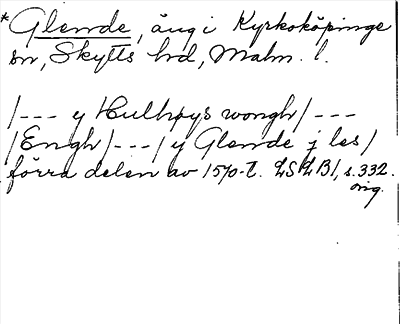 *Glende, äng i Kyrkoköpinge
sn, Skytts hd, Malm. l.
/--- y Hulhøys wongh/---
/Engh/---/ y Glende j les/
förra delen av 1570-t. LSLB1, s. 332.
orig.